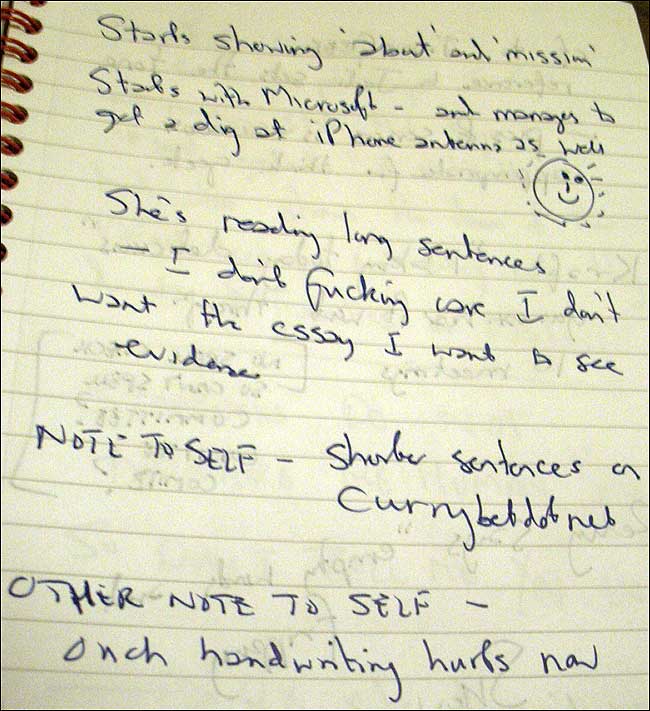 Starts showing 'about' and 'mission'
Starts with Microsoft - and manages to
get a dig at iPhone antenna as well
She's reading long sentences
- I don't fucking care I don't
want the essay I want to see
evidence
NOTE TO SELF - Shorter sentences on
Currybetdotnet
OTHER NOTE TO SELF -
Ouch handwriting hurts now